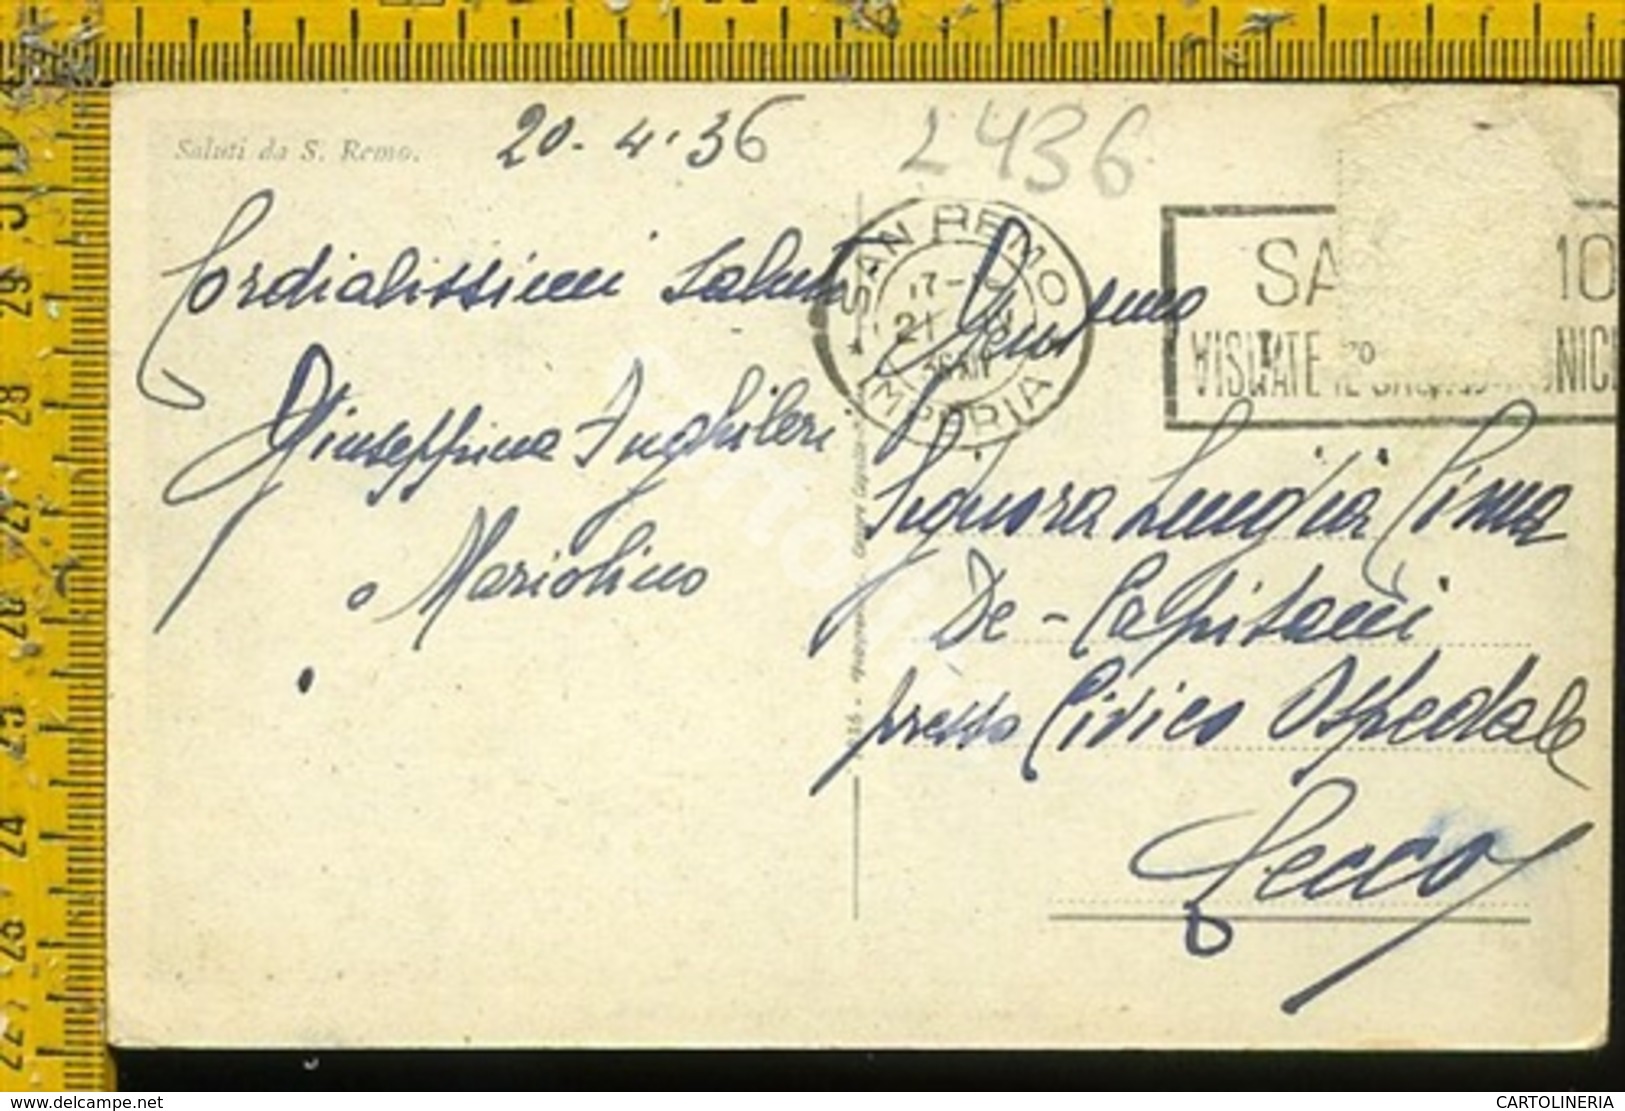 Saluti da S. Remo.
20-4-36
L436
Cordialissimi saluti
Giuseppina Inghileri
Mariolino
SAN REMO
17-
21
36 XIV
IMPERIA
VISITATE IL
Signora Luigia Cima
De-Capitani
presso Civico Ospedale
Lecco
www.delcampe.net
CARTOLINERIA